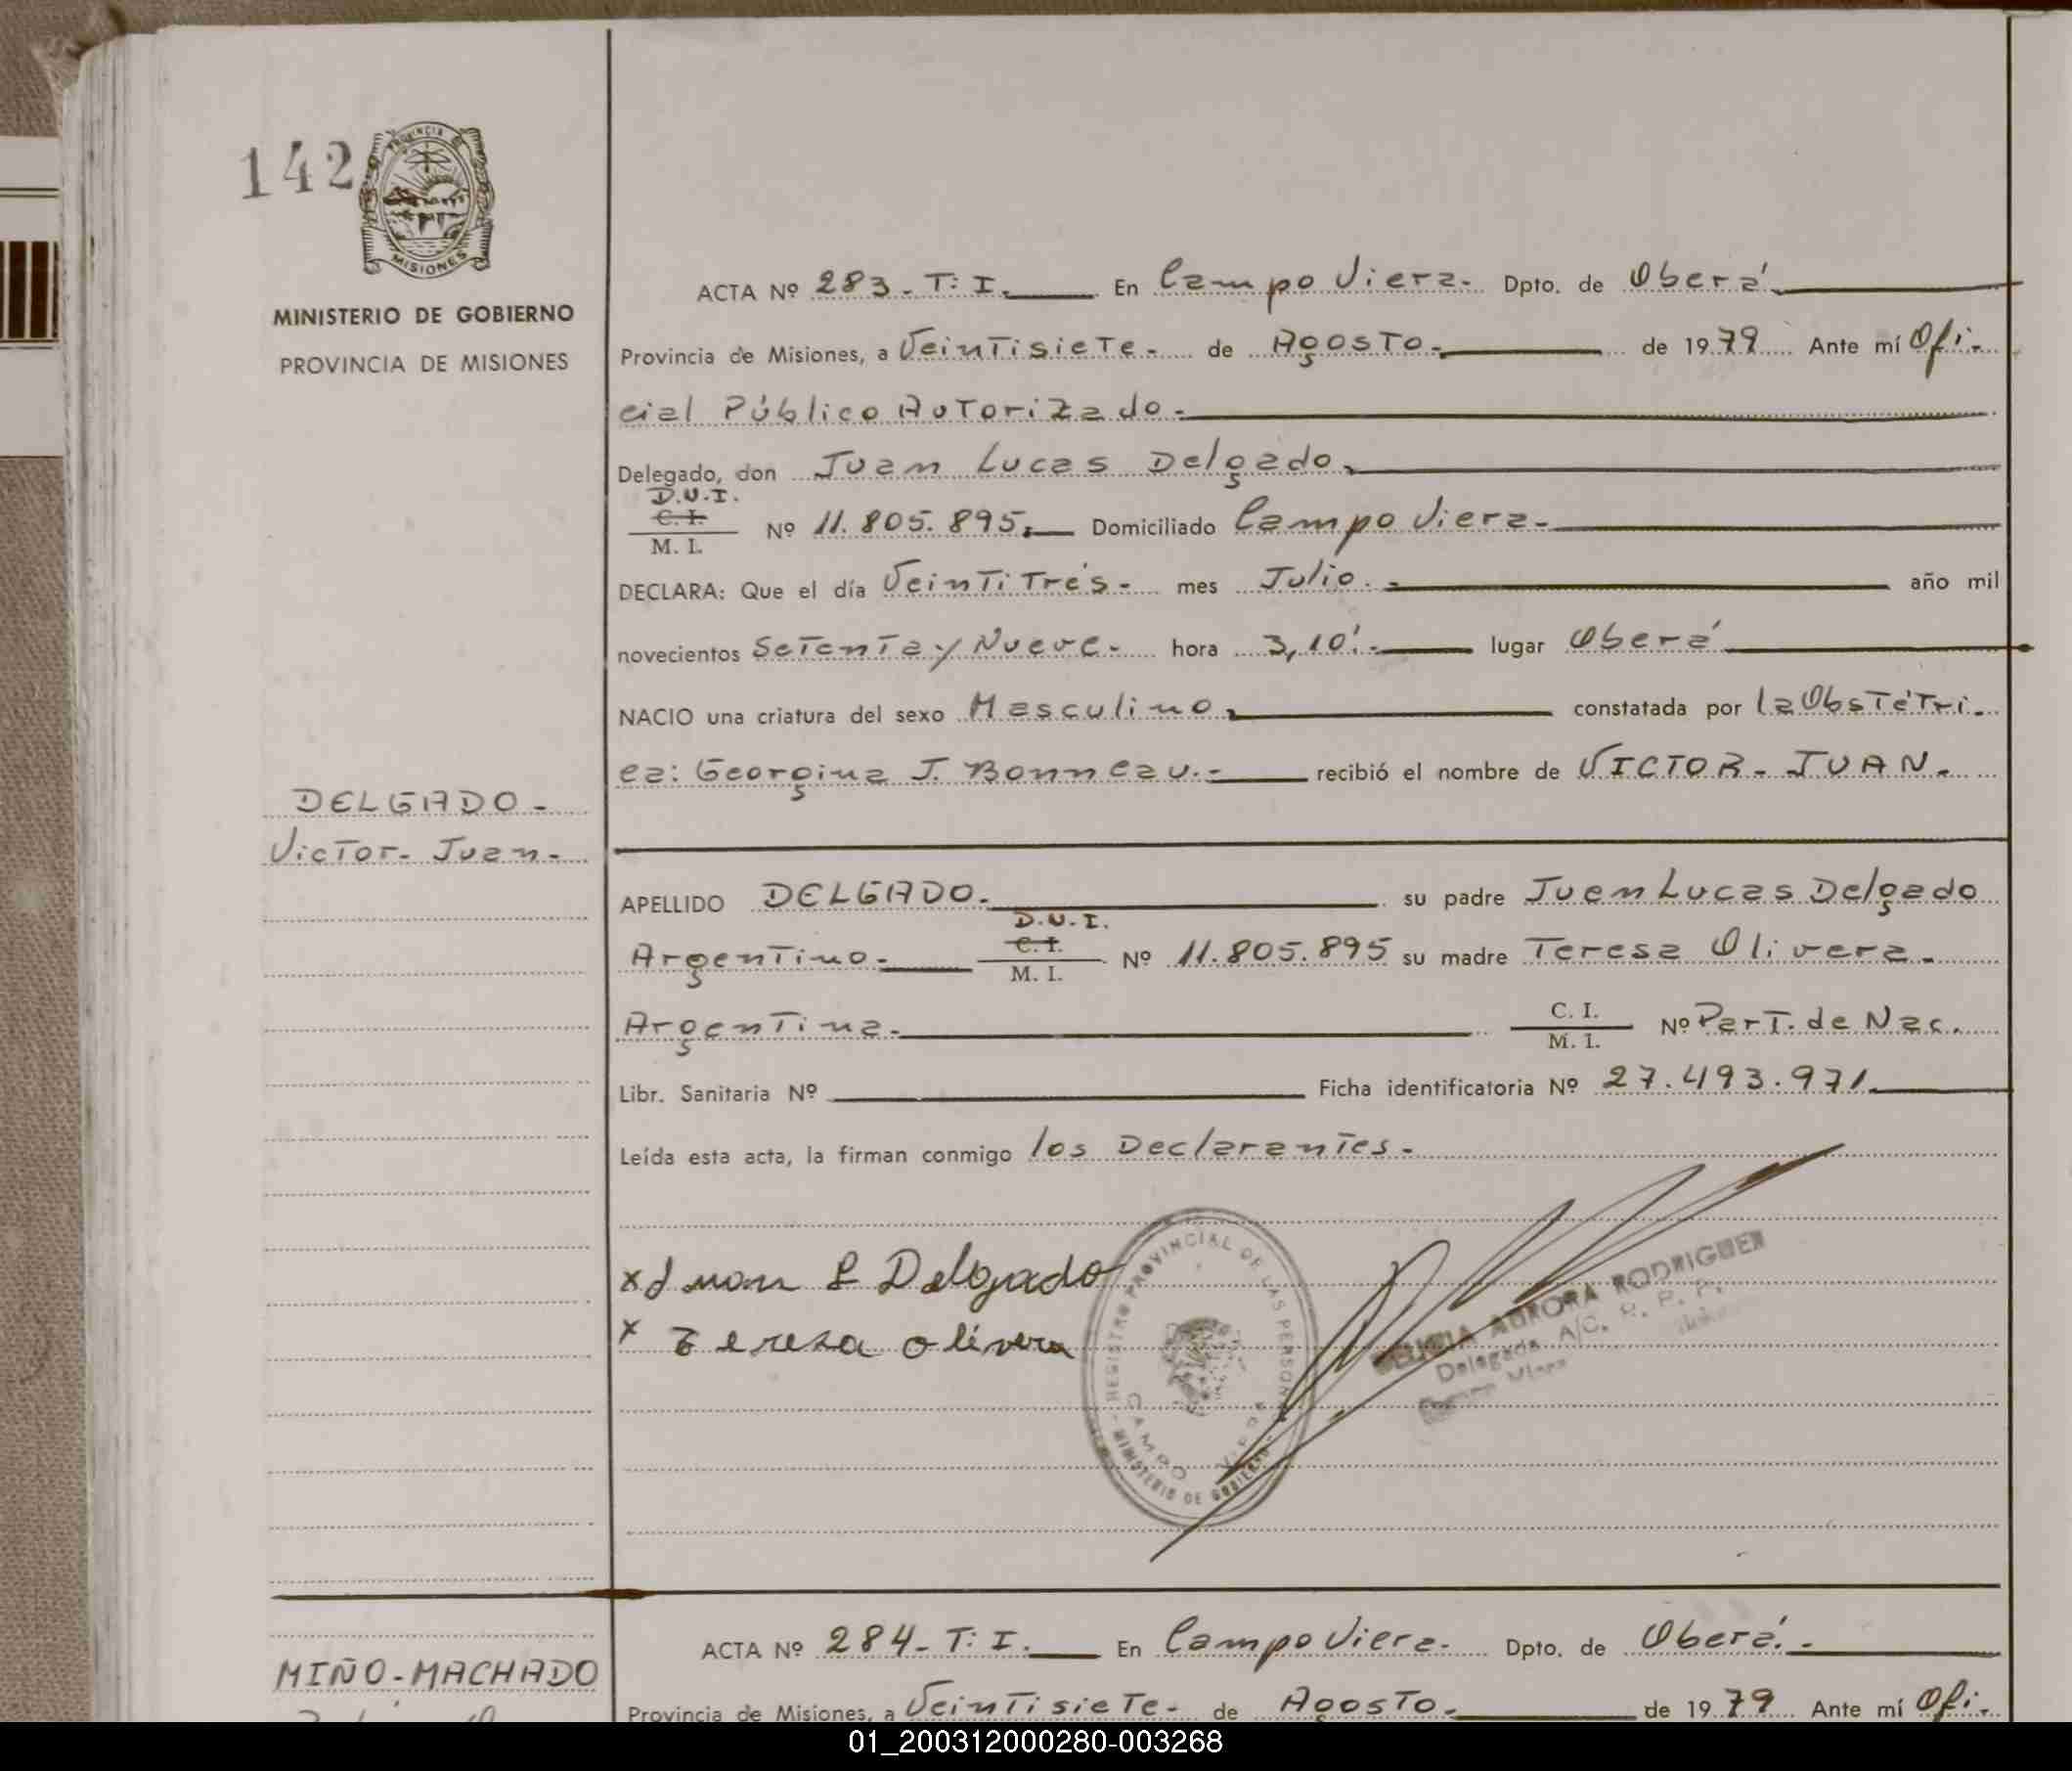 142
PROVINCIA
MISIONES
MINISTERIO DE GOBIERNO
PROVINCIA DE MISIONES
ACTA Nº 283 - T: I. En Campo Viera. Dpto. de Oberá
Provincia de Misiones, a Veintisiete. de Agosto. de 1979 Ante mí Ofi-
cial Público Autorizado.
Delegado, don Juan Lucas Delgado.
D.U.I.
C. I.
M. I. Nº 11.805.895. Domiciliado Campo Viera.
DECLARA: Que el día Veintitrés. mes Julio. año mil
novecientos Setenta y Nueve. hora 3,10'. lugar Oberá
NACIO una criatura del sexo Masculino. constatada por la Obstétri-
ca: Georgina J. Bonneau. recibió el nombre de VICTOR - JUAN.
DELGADO -
Victor - Juan -
APELLIDO DELGADO. su padre Juan Lucas Delgado
D.U.I.
Argentino. C. I. M. I. Nº 11.805.895 su madre Teresa Olivera.
Argentina. C. I. M. I. Nº Part. de Nac.
Libr. Sanitaria Nº Ficha identificatoria Nº 27.493.971.
Leída esta acta, la firman conmigo los Declarantes.
x Juan L Delgado
x Teresa olivera
REGISTRO PROVINCIAL DE LAS PERSONAS
CAMPO VIERA
MINISTERIO DE GOBIERNO
AURORA RODRIGUEZ
Delegada A/C. R. P. P.
Campo Viera
ACTA Nº 284 - T: I. En Campo Viera. Dpto. de Oberá.
MIÑO - MACHADO
Provincia de Misiones, a Veintisiete. de Agosto. de 1979 Ante mí Ofi-
01_200312000280-003268